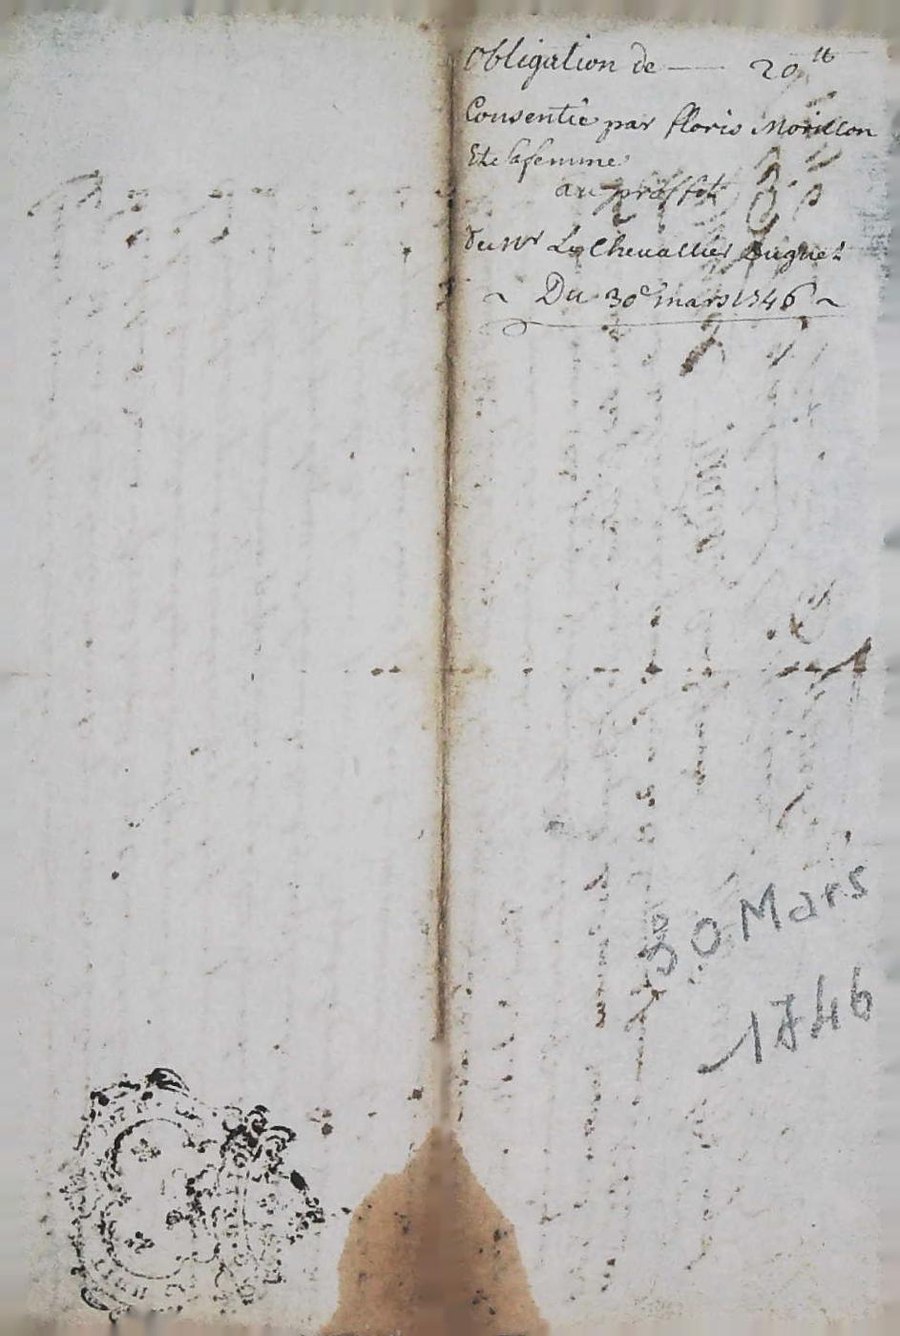 Obligation de — 20 tt
Consentie par floris Morillon
Et sa femme
au proffit
du Sr Le Chevallier Duguet
~ Du 30e mars 1746 ~
30 Mars
1746